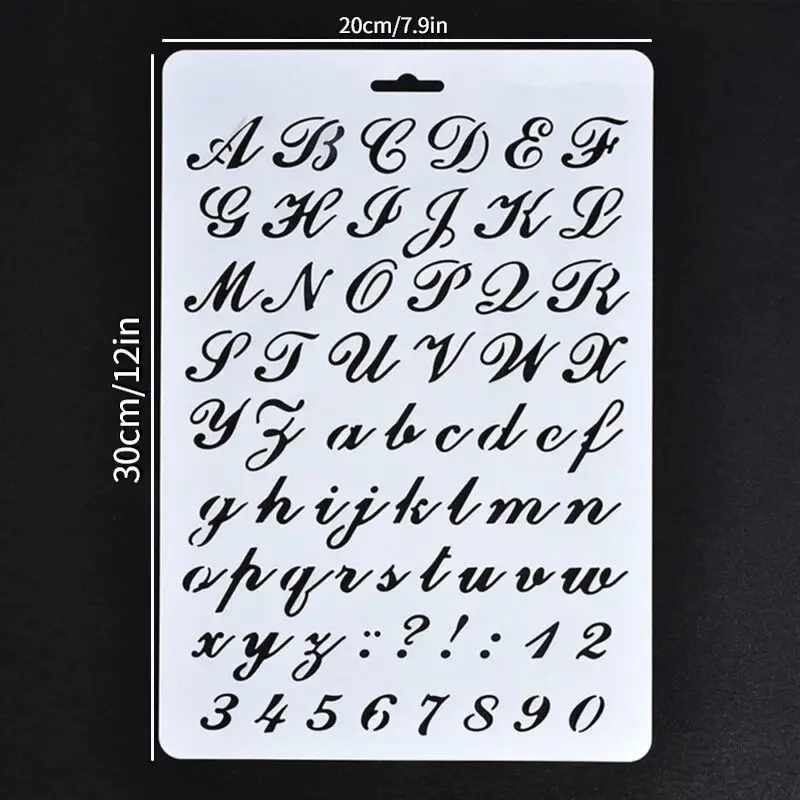 20cm/7.9in
30cm/12in
A B C D E F
G H I J K L
M N O P Q R
S T U V W X
Y Z a b c d e f
g h i j k l m n
o p q r s t u v w
x y z : ? ! : 1 2
3 4 5 6 7 8 9 0